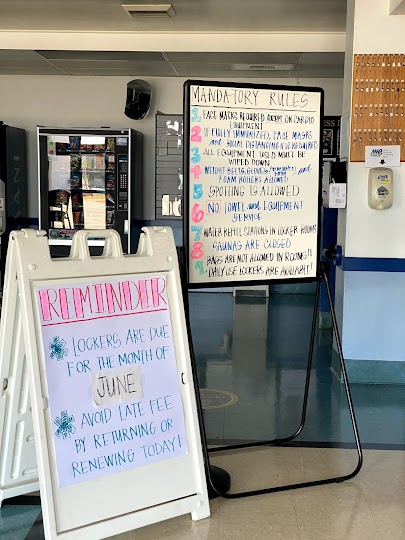 MANDATORY RULES
1 FACE MASKS REQUIRED EXCEPT ON CARDIO
EQUIPMENT
2 IF FULLY IMMUNIZED, FACE MASKS
and SOCIAL DISTANCING IF NOT REQUIRED
3 ALL EQUIPMENT USED MUST BE
WIPED DOWN
4 WEIGHT BELTS, GLOVES, and
FOAM ROLLERS ALLOWED
5 SPOTTING IS ALLOWED
6 NO TOWEL AND EQUIPMENT
SERVICE
7 WATER REFILL STATIONS IN LOCKER ROOMS
8 SAUNAS ARE CLOSED
9 BAGS ARE NOT ALLOWED IN ROOMS!!
DAILY USE LOCKERS ARE AVAILABLE!
REMINDER
LOCKERS ARE DUE
FOR THE MONTH OF
JUNE
AVOID LATE FEE
BY RETURNING OR
RENEWING TODAY!